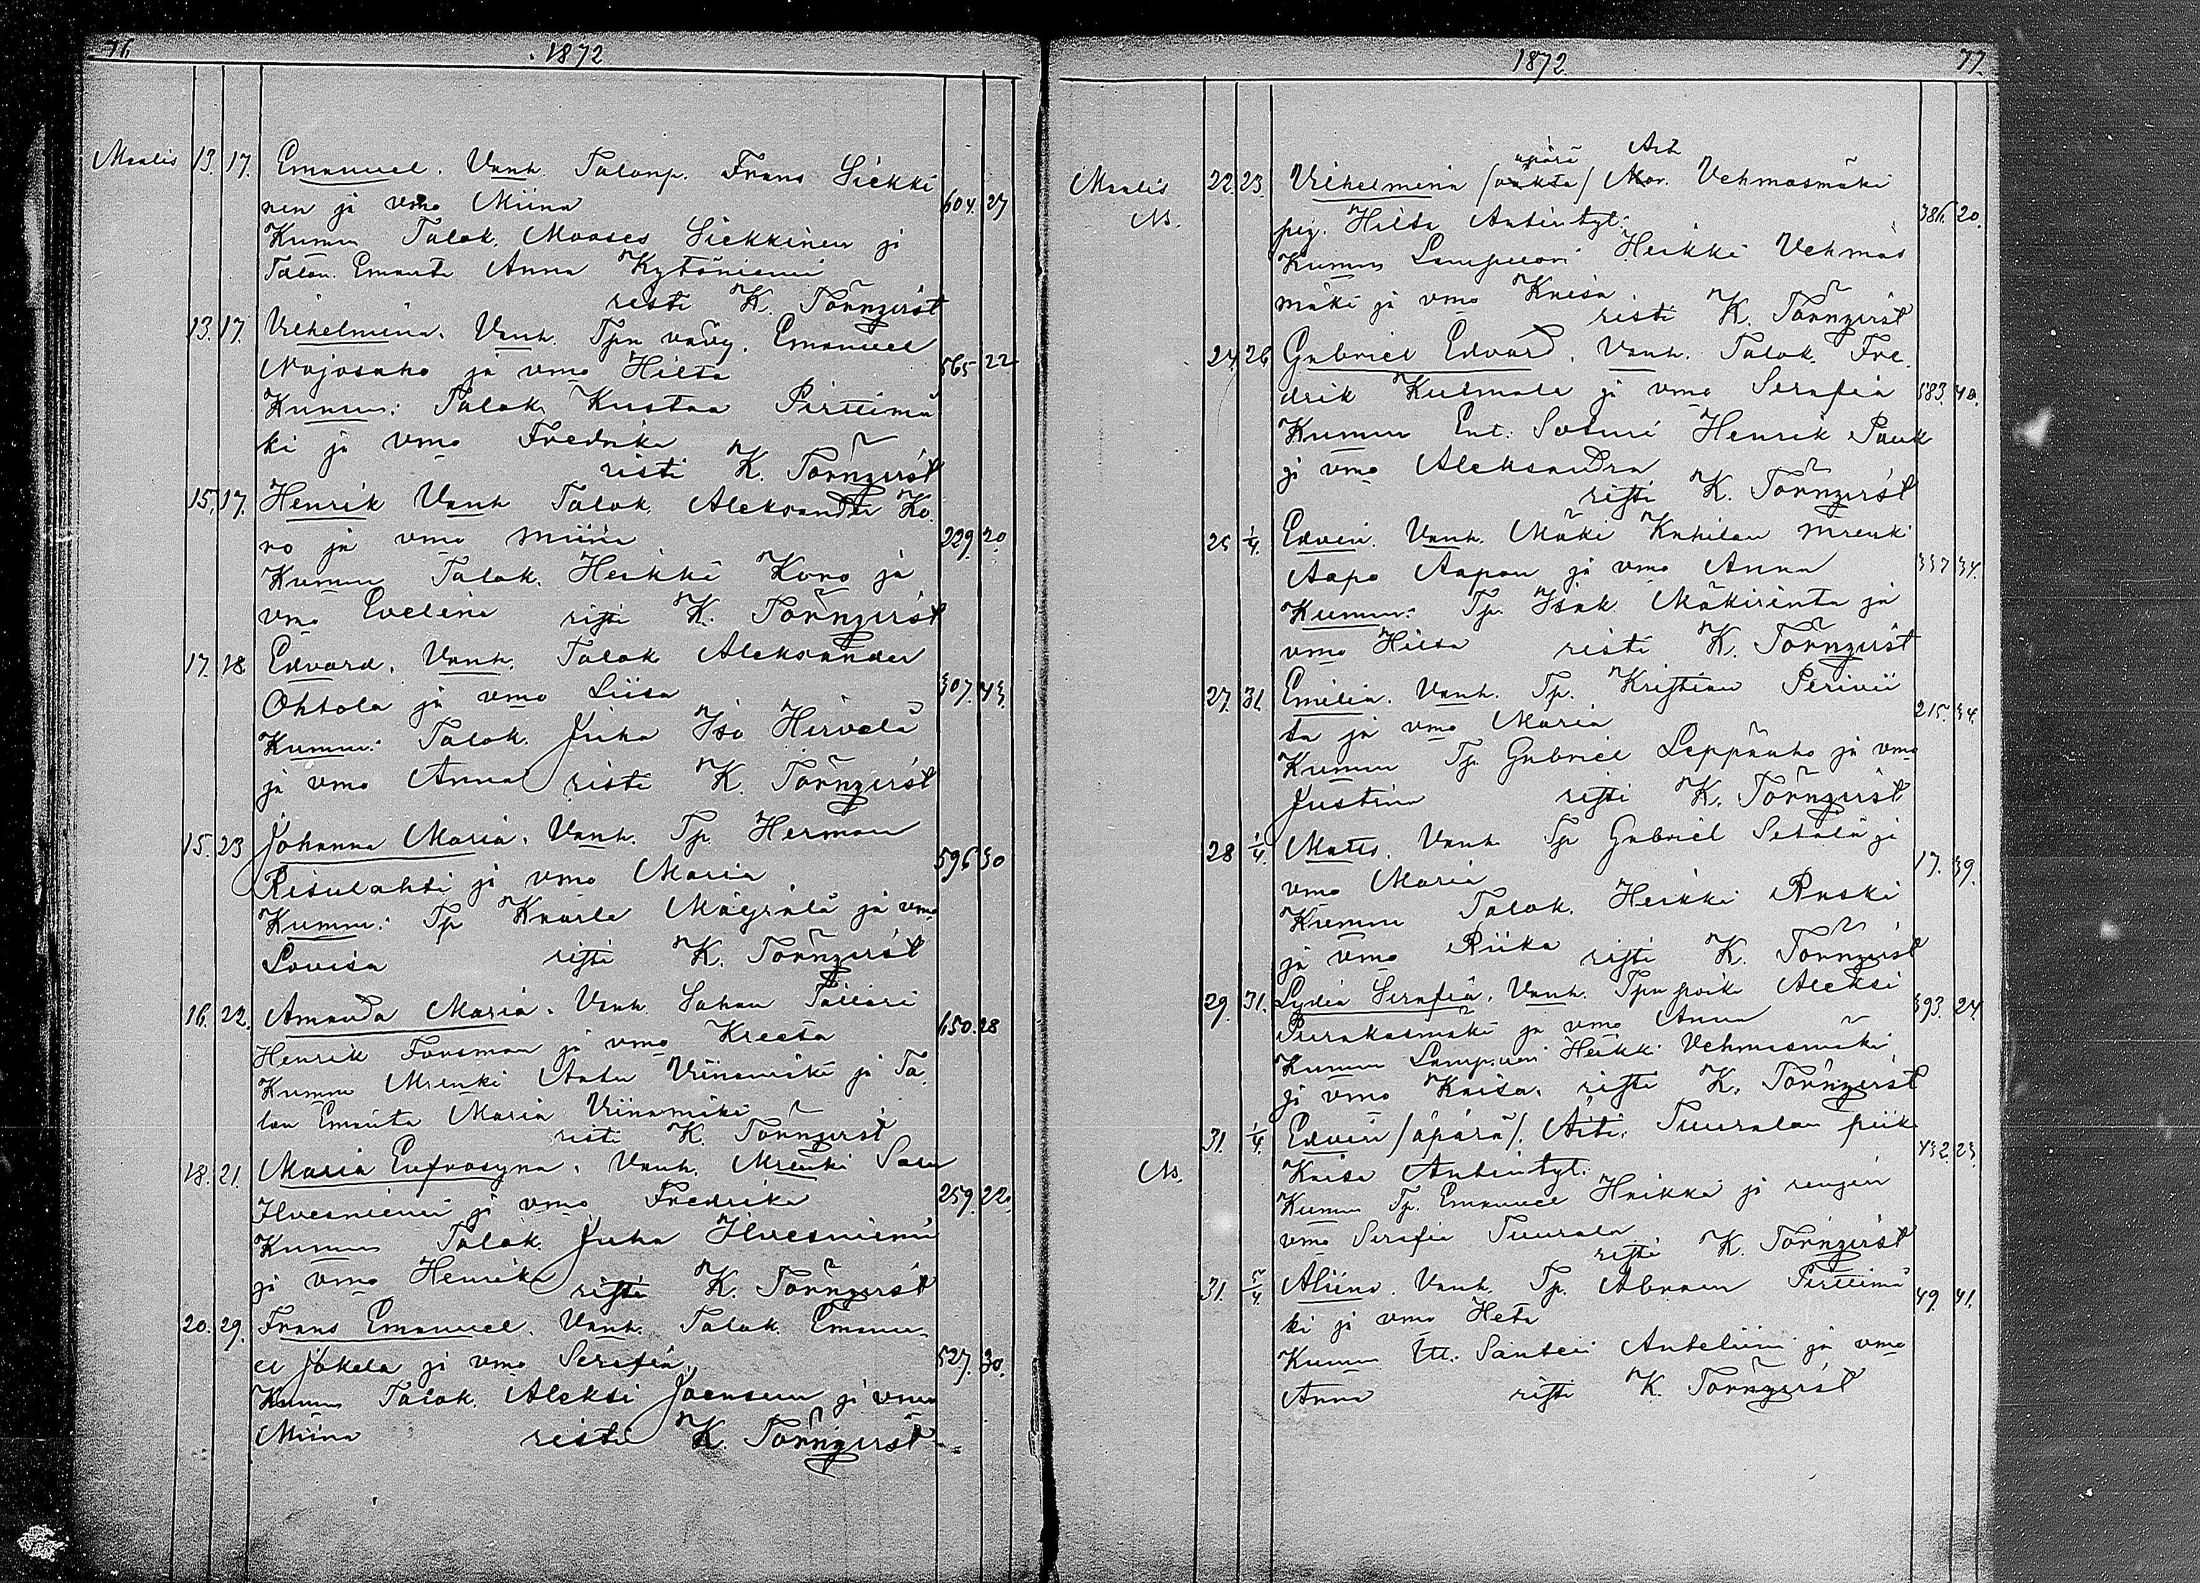 76 1872
Maalis 13. 17. Emanuel. Vanh. Talonp. Frans Siekki
nen ja vmo Miina 604. 27
Kumm Talok. Mooses Siekkinen ja
Talon Emäntä Anna Kytöniemi
risti K. Törnqvist
13. 17. Vilhelmina. Vanh. Tpn vävy. Emanuel
Nojosaho ja vmo Hilta 565 22
Kumm: Talok Kustaa Pirttimä
ki ja vmo Fredrika
risti K. Törnqvist
15. 17. Henrik Vanh Talok. Aleksander Ko.
ro ja vmo Miina 229. 20.
Kumm Talok. Heikki Koro ja
vmo Evelina risti K. Törnqvist
17. 18 Edvard. Vanh. Talok Aleksander
Ohtola ja vmo Liisa 307. 43.
Kumm: Talok. Juha Iso Hirvelä
ja vmo Anna risti K. Törnqvist
15. 23 Johanna Maria. Vanh. Tp. Herman
Risulahti ja vmo Maria 596 30
Kumm: Tp Kaarle Mäyrälä ja vmo
Lovisa risti K. Törnqvist
16. 22. Amanda Maria. Vanh. Sahan Tälläri
Henrik Forsman ja vmo Kreeta 650. 28
Kumm Mrenki Antu Viinamäki ja Ta
lon Emäntä Maria Viinamäki
risti K. Törnqvist
18. 21. Maria Eufrosyna. Vanh. Mrenki
Ilvesniemi ja vmo Fredrika 259. 22.
Kumm Talok. Juha Ilvesniemi
ja vmo Henrika risti K. Törnqvist
20. 29. Frans Emanuel. Vanh. Talok. Emanu
el Jokela ja vmo Serafia. 527. 30.
Kumm Talok. Aleksi Joensuu ja vmo
Miina risti K. Törnqvist
1872 77.
äpärä Äit
Maalis 22. 23. Vilhelmina /oäkta/ Mor. Vehmasmäki
Ns. pig. Hilda Antintyt. 386. 20.
Kumm Lampuori Heikki Vehmas
mäki ja vmo Kaisa
risti K. Törnqvist
24. 26 Gabriel Edvard. Vanh. Talok. Fre.
drik Kulmala ja vmo Serafia 583. 40.
Kumm Ent. Soturi Henrik Pauk
ja vmo Aleksandra
risti K. Törnqvist
25 1/4. Edvin. Vanh. Mäki Kahilan mrenki
Aapo Aapon ja vmo Anna 337 34.
Kumm: Tp. Isak Mäkirinta ja
vmo Hilta risti K. Törnqvist
27. 31. Emilia. Vanh. Tp. Kristian Perivii
ta ja vmo Maria 215. 34.
Kumm Tp. Gabriel Leppäaho ja vmo
Justina risti K. Törnqvist
28 1/4. Matts. Vanh. Tp Gabriel Setälä ja
vmo Maria 17. 39.
Kumm Talok. Heikki Raski
ja vmo Riika risti K. Törnqvist
29. 31. Lydia Serafia. Vanh. Tpn poika Aleksi
Purakasmäki ja vmo Anna 393. 24.
Kumm Lampuori Heikki Vehmasmäki
ja vmo Kaisa. risti K. Törnqvist
31. 1/4 Edvin /äpärä/. Äiti. Tuuralan piik
Ns. Kaisa Antintyt. 432. 23.
Kumm Tp. Emanuel Haikka ja rengin
vmo Serafia Tuurala
risti K. Törnqvist
31. 5/4. Aliina. Vanh. Tp. Abram Pirttimä
ki ja vmo Heta 49. 41.
Kumm Itl. Santeri Antelimi ja vmo
Anna risti K. Törnqvist